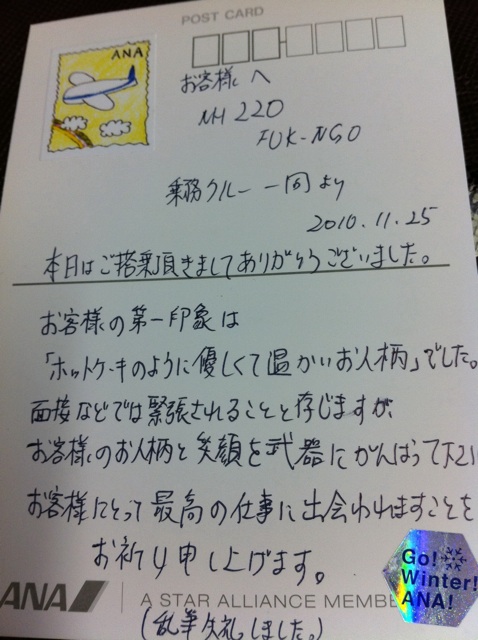 POST CARD
ANA
お客様へ
NH 220
FUK-NGO
乗務クルー一同より
2010.11.25
本日はご搭乗頂きましてありがとうございました。
お客様の第一印象は
「ホットケーキのように優しくて温かいお人柄」でした。
面接などでは緊張されることと存じますが
お客様のお人柄と笑顔を武器にがんばって下さい
お客様にとって最高の仕事に出会われますことを
お祈り申し上げます。
ANA
A STAR ALLIANCE MEMBE
Go!
Winter!
ANA!
(乱筆失礼しました。)